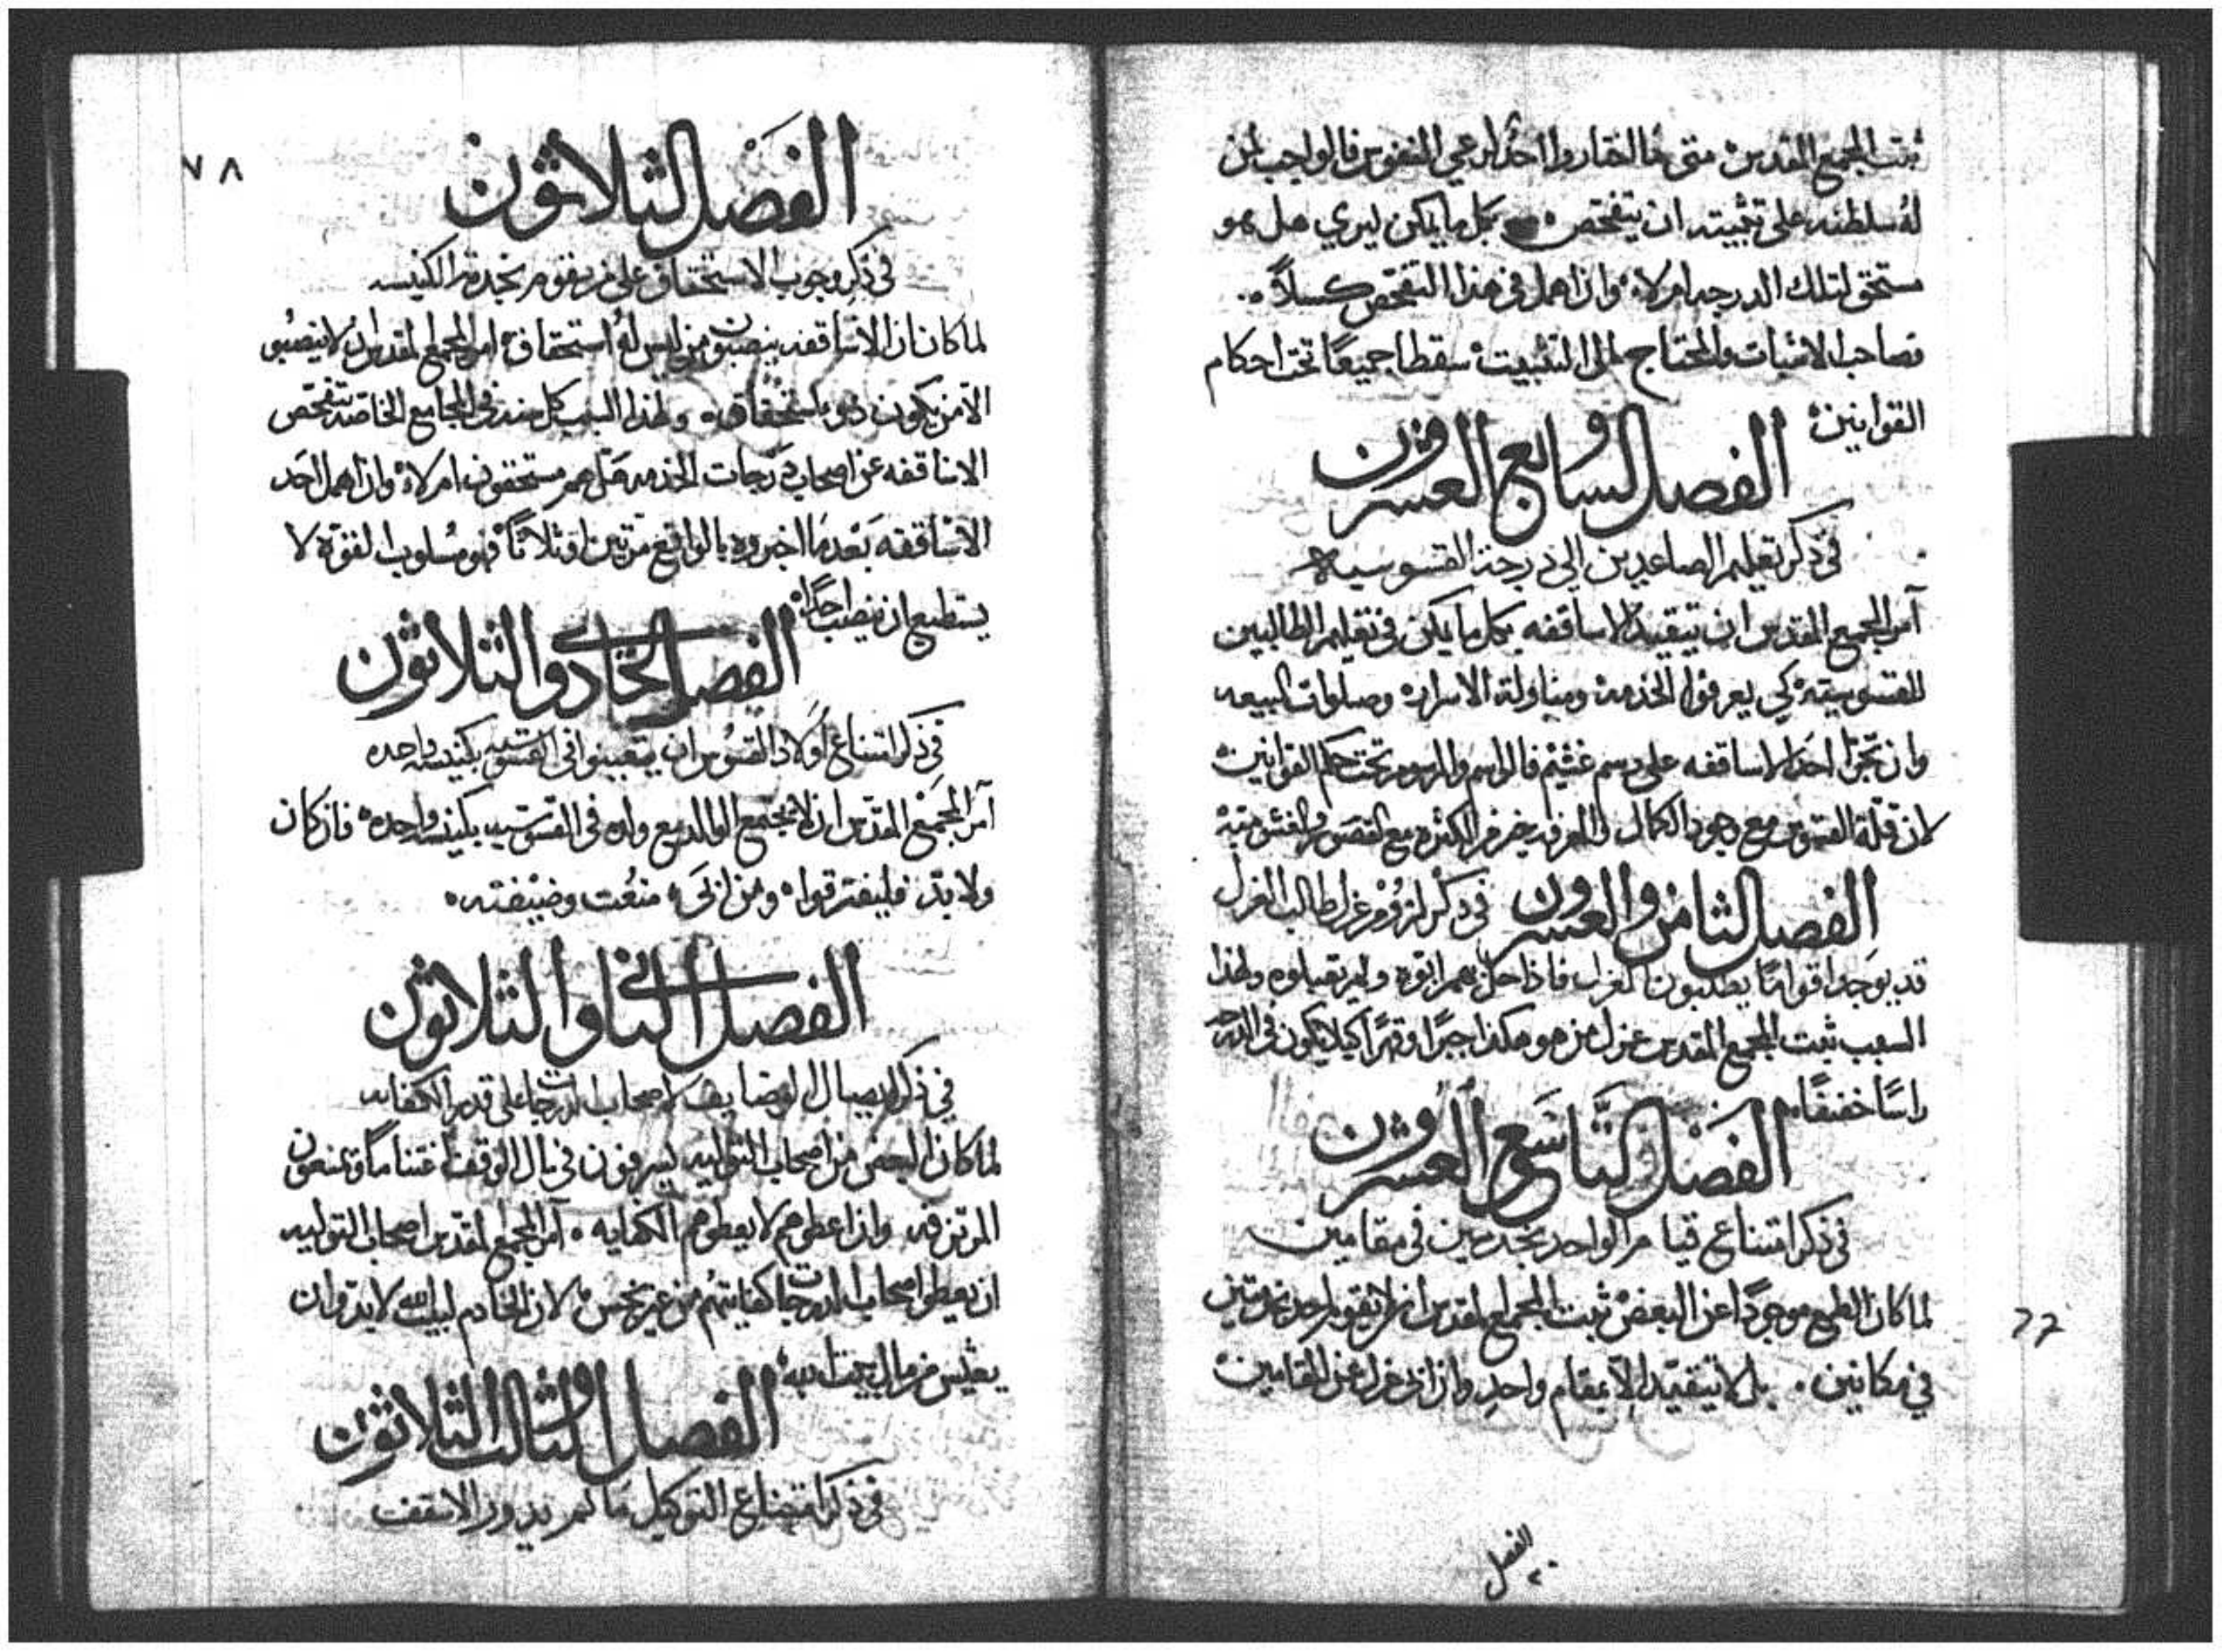 ثبت المجمع المقدس متى ما اختاروا احدًا لرعي النفوس فالواجب لمن
له سلطنه على تثبيته ان يتفحص بكل ما يمكن ليري هل هو
مستحق لتلك الدرجه ام لاه واذا اهمل في هذا التفحص كسلاً
فصاحب الاثبات والمحتاج الى التثبيت سقطا جميعًا تحت احكام
القوانين
الفصل السابع والعشرون
في ذكر تعليم الصاعدين الي درجة القسوسيه
امر المجمع المقدس ان تتقيد الاساقفه بكل ما يمكن في تعليم الطالبين
للقسوسيته كي يعرفوا الخدمة ومناولة الاسرار وصلوات البيعه
وان تجرا احد الاساقفه على رسم غشيم فالراسم والمرسوم تحت حكم القوانين
لان قلة القسوس مع وجود الكمال والمعرفه خير من الكثره مع القصور والغشوميته
الفصل الثامن والعشرون في ذكر لزوم عزل طالب العزل
قد يوجد اقوامًا يطلبون العزل فاذا حل بهم ابوه ولم يقبلوه ولهذا
السبب ثبت المجمع المقدس عزل من هو هكذا جبرًا وقهرًا كيلا يكون في الدرجه
راسًا خفيفًا
الفصل التاسع والعشرون
في ذكر امتناع قيام الواحد بخدمتين في مقامين
لما كان الطمع موجودًا عن البعض ثبت المجمع المقدس ان لا يقوم احد بخدمتين
في مكانين بل لا يتقيد الا بمقام واحد واذا نزل عن المقامين
الفصل
٧٨
الفصل الثلاثون
في ذكر وجوب الاستحقاق على من يقوم بخدمة الكنيسه
لما كان ان الاساقفه ينصبون من ليس له استحقاق امر المجمع المقدس ان لا ينصبوا
الا من يكون ذو باستحقاق ولهذا السبب كل سنه في المجامع الخاصه تتفحص
الاساقفه عن اصحاب درجات الخدمه هل هم مستحقون ام لاه واذا اهمل احد
الاساقفه بعد ما اخبروه بالواقع مرتين او ثلاثًا فهو مسلوب القوة لا
يستطيع ان ينصب احدًا
الفصل الحادي والثلاثون
في ذكر امتناع اولاد القسوس ان يتعينوا في القسوسيه بكنيسه واحده
امر المجمع المقدس ان لا يجتمع الوالد مع ولده في القسوسيه بكنيسه واحده فاذ كان
ولا بد فليفترقوا ومن ابى منعت وضيفته
الفصل الثاني والثلاثون
في ذكر ايصال الوضايف لاصحاب الدرجات على قدم الكفايه
لما كان البعض من اصحاب التوليه يسرفون في مال الوقف اغتنامًا ويمنعون
المرتزقه واذا اعطوهم لا يعطوهم الكفايه امر المجمع المقدس اصحاب التوليه
ان يعطوا اصحاب الدرجات كفايتهم من غير بخس لان الخادم لبيت الله لا بد وان
يعيش من مال بيت الله
الفصل الثالث والثلاثون
في ذكر امتناع التوكيل ما لم يدور الاسقف